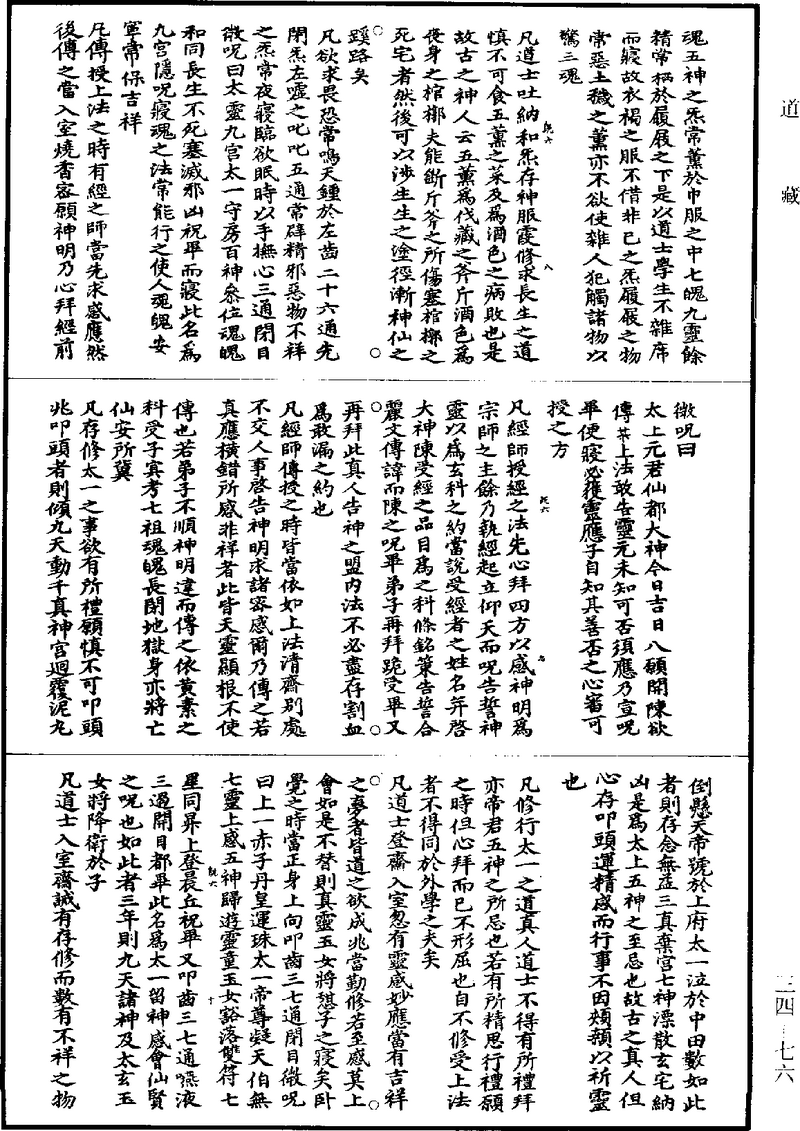 道藏
三四-七六
魂五神之炁常薰於巾服之中七魄九靈餘
精常栖於履屐之下是以道士學生不雜席
而寢故衣褐之服不借非己之炁履屐之物
常惡土穢之薰亦不欲使雜人犯觸諸物以
驚三魂
凡道士吐納和炁存神服霞修求長生之道
慎不可食五薰之菜及為酒色之病敗也是
故古之神人云五薰為伐藏之斧斤酒色為
喪身之棺槨夫能斷斤斧之所傷塞棺槨之
死宅者然後可以涉生生之塗徑漸神仙之
蹊路矣
凡欲求畏恐常鳴天鍾於左齒二十六通先
閉炁左噓之叱叱五通常辟精邪惡物不祥
之炁常夜寢臨欲眠時以手撫心三通閉目
微呪曰太靈九宮太一守房百神參位魂魄
和同長生不死塞滅邪凶祝畢而寢此名為
九宮隱呪寢魂之法常能行之使人魂魄安
寧常保吉祥
凡傳授上法之時有經之師當先求感應然
後傳之當入室燒香密願神明乃心拜經前
微呪曰
太上元君仙都大神今日吉日八願開陳欲
傳某上法敢告靈元未知可否須應乃宣呪
畢便寢必獲靈應子自知其善否之心審可
授之方
凡經師授經之法先心拜四方以感神明為
宗師之主餘乃執經起立仰天而呪告誓神
靈以為玄科之約當說受經者之姓名并啓
大神陳受經之品目為之科條銘策告誓合
麗文傳諱而陳之呪畢弟子再拜跪受畢又
再拜此真人告神之盟內法不必盡存割血
為敢漏之約也
凡經師傳授之時皆當依如上法清齋別處
不交人事啓告神明求諸容感爾乃傳之若
真應橫錯所感非祥者此皆天靈顯根不使
傳也若弟子不順神明違而傳之依黃素之
科受子冥考七祖魂魄長閉地獄身亦將亡
仙安所冀
凡存修太一之事欲有所禮願慎不可叩頭
兆叩頭者則傾九天動千真神宮迴覆泥丸
倒懸天帝號於上府太一泣於中田數如此
者則存念無益三真棄宮七神漂散玄宅納
凶是為太上五神之至忌也故古之真人但
心存叩頭運精感而行事不因頰顙以祈靈
也
凡修行太一之道真人道士不得有所禮拜
亦帝君五神之所忌也若有所精思行禮願
之時但心拜而已不形屈也自不修受上法
者不得同於外學之夫矣
凡道士登齋入室忽有靈感妙應當有吉祥
之夢者皆道之欲成兆當勤修若至感莫上
會如是不替則真靈玉女將憩子之寢矣卧
覺之時當正身上向叩齒三七通閉目微呪
曰上一赤子丹皇運珠太一帝尊凝天伯無
七靈上感五神歸遊靈童玉女豁落雙符七
星同昇上登晨丘祝畢又叩齒三七通嚥液
三過開目都畢此名為太一留神感會仙賢
之呪也如此者三年則九天諸神及太玄玉
女將降衛於子
凡道士入室齋誡有存修而數有不祥之物